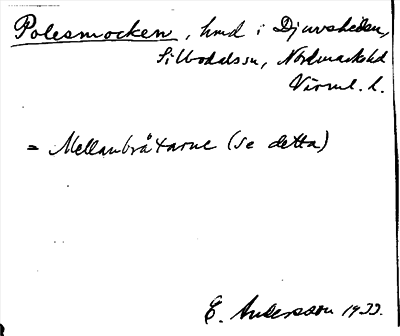 Polesmocken, hmd i Djuvsheden,
Silbodalssn, Nordmarkshd
Värml. l.
= Mellanbråtarne (se detta)
E. Andersson 1933.